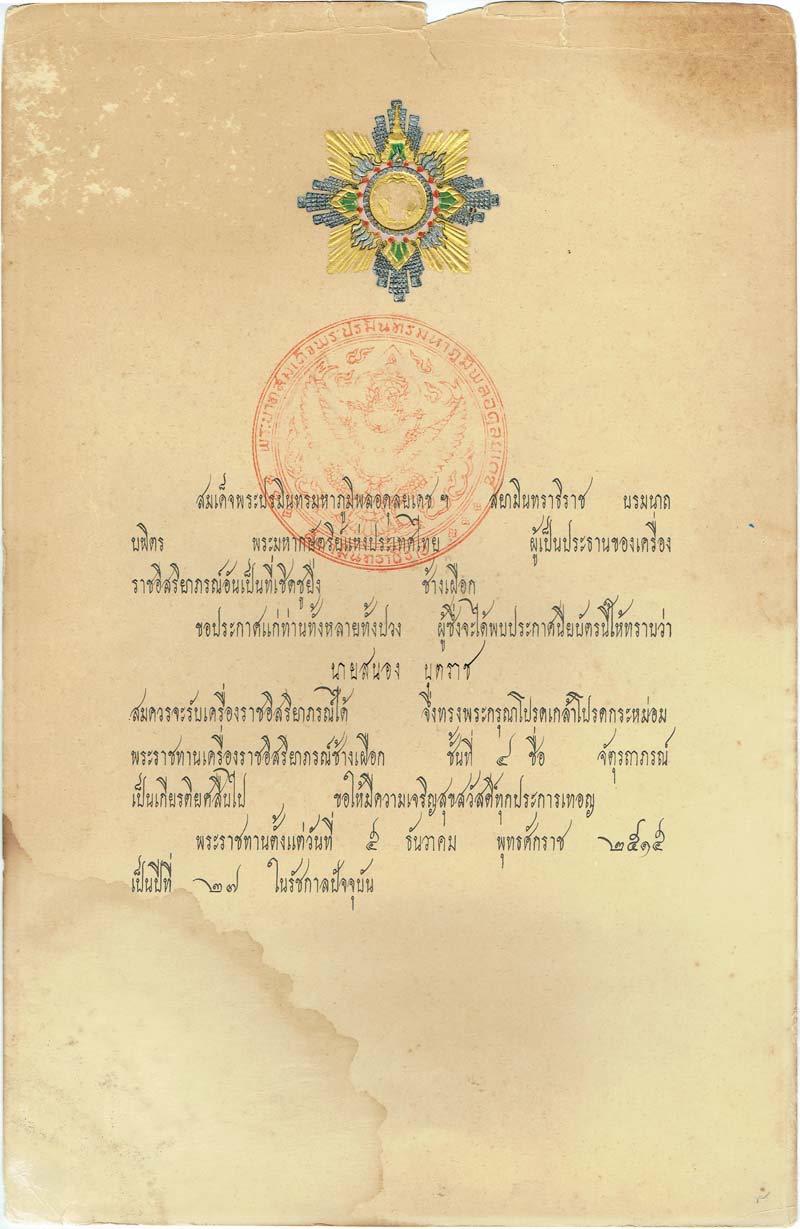 พระบาทสมเด็จพระปรมินทรมหาภูมิพลอดุลยเดช
สยามินทราธิราช
สมเด็จพระปรมินทรมหาภูมิพลอดุลยเดช ฯ สยามินทราธิราช บรมนาถ
บพิตร พระมหากษัตริย์แห่งประเทศไทย ผู้เป็นประธานของเครื่อง
ราชอิสริยาภรณ์อันเป็นที่เชิดชูยิ่ง ช้างเผือก
ขอประกาศแก่ท่านทั้งหลายทั้งปวง ผู้ซึ่งจะได้พบประกาศนียบัตรนี้ให้ทราบว่า
นายสนอง บุตราช
สมควรจะรับเครื่องราชอิสริยาภรณ์ได้ จึ่งทรงพระกรุณาโปรดเกล้าโปรดกระหม่อม
พระราชทานเครื่องราชอิสริยาภรณ์ช้างเผือก ชั้นที่ ๔ ชื่อ จัตุรถาภรณ์
เป็นเกียรติยศสืบไป ขอให้มีความเจริญสุขสวัสดิ์ทุกประการเทอญ
พระราชทานตั้งแต่วันที่ ๕ ธันวาคม พุทธศักราช ๒๕๑๕
เป็นปีที่ ๒๗ ในรัชกาลปัจจุบัน